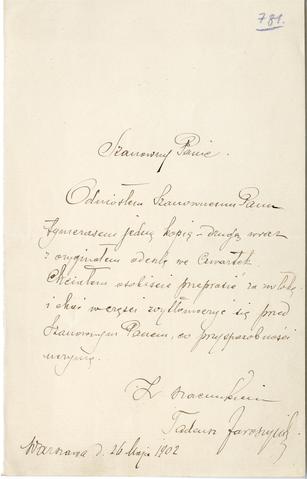 781.
Szanowny Panie.
Odniosłem Szanownemu Panu
tymczasem jedną kopię – drugą wraz
z oryginałem odeślę we Czwartek.
Chciałem osobiście przeprosić za zwłokę
i choć w części wytłumaczyć się przed
Szanownym Panem, co przy sposobności
uczynię.
Z szacunkiem
Tadeusz Jaroszyński
Warszawa d. 26 Maja 1902